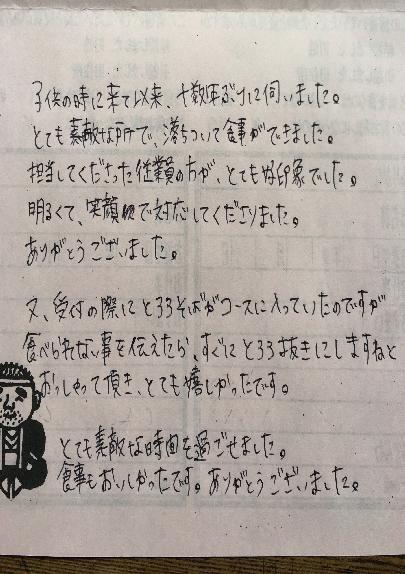 子供の時に来て以来、十数年ぶりに伺いました。
とても素敵な所で、落ちついて食事ができました。
担当してくださった従業員の方が、とても好印象でした。
明るくて、笑顔で対応してくださりました。
ありがとうございました。
又、受付の際にとろろそばがコースに入っていたのですが
食べられない事を伝えたら、すぐにとろろ抜きにしますねと
おっしゃって頂き、とても嬉しかったです。
とても素敵な時間を過ごせました。
食事もおいしかったです。ありがとうございました。